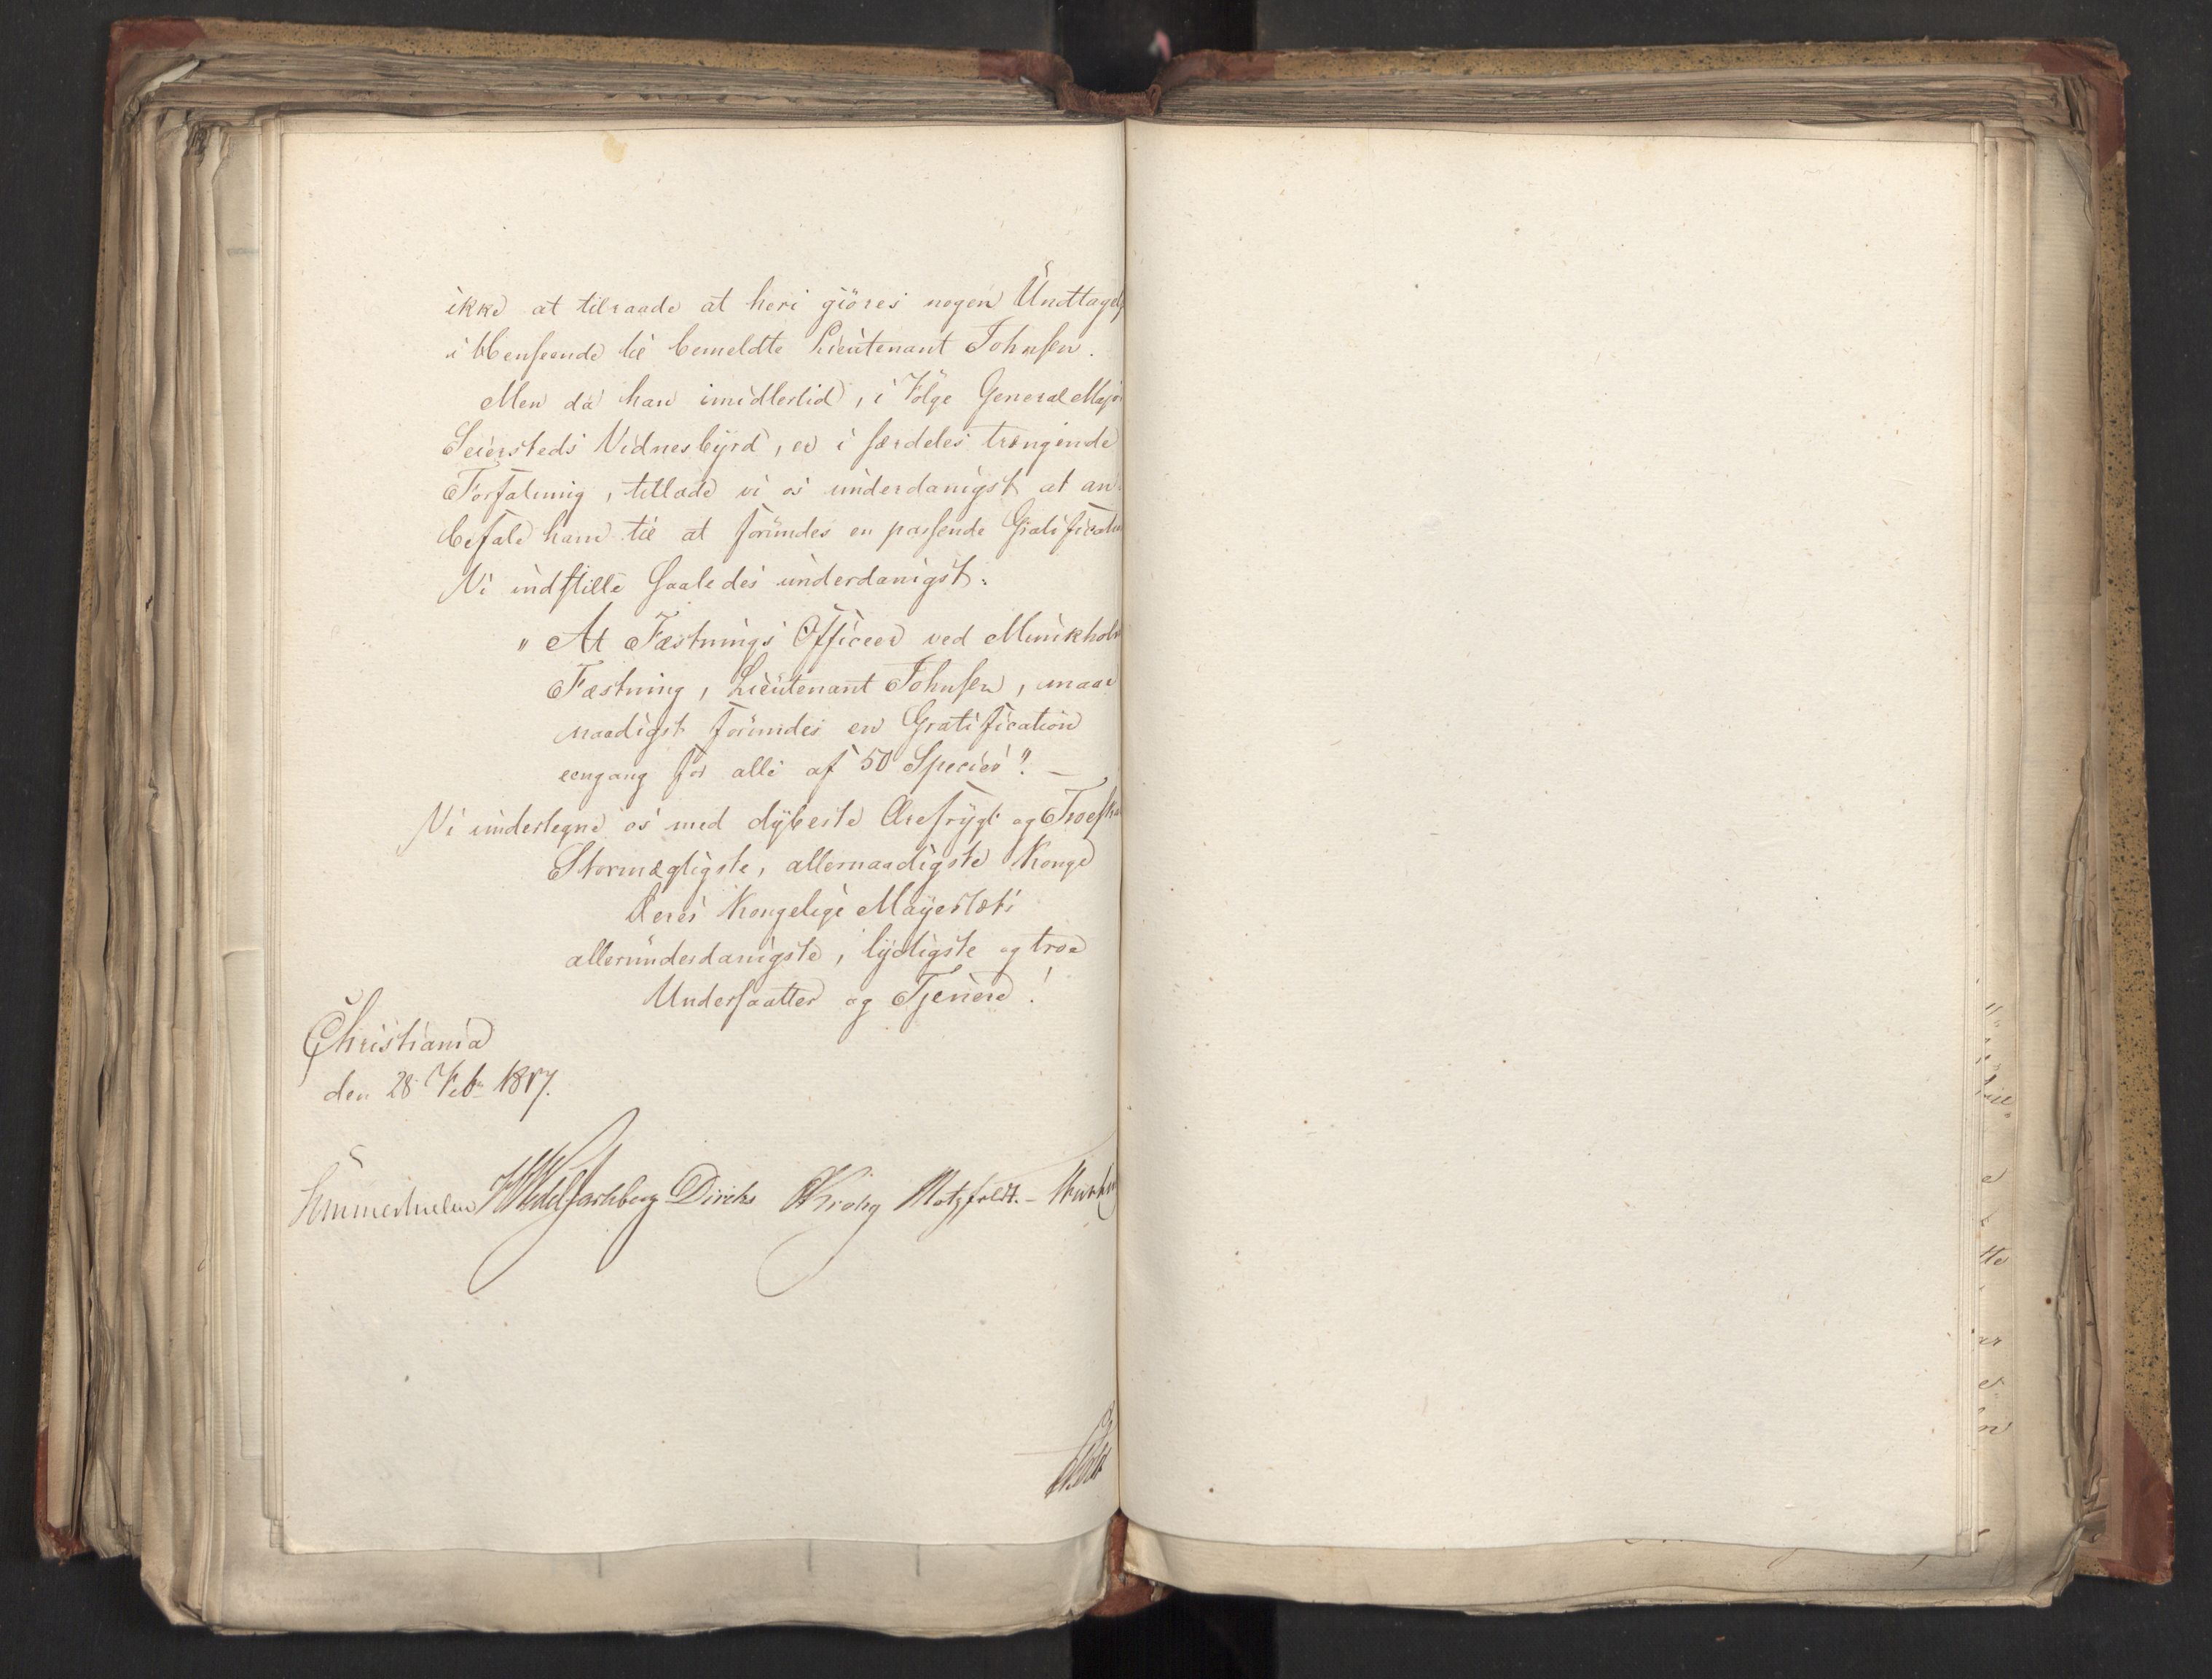 ikke at tilraade at heri giöres nogen Undtagelse
i Henseende til bemeldte Lieutenant Johnsen.
Men da han imidlertid, i Fölge General Major
Seiersteds Vidnesbyrd, er i særdeles trængende
Forfatning, tillade vi os underdanigst at an-
befale ham til at forundes en passende Gratification
Vi indstille saaledes underdanigst:
" At Fæstnings Officeer ved Munkholm
Fæstning, Lieutenant Johnsen, maae
naadigst forundes en Gratification
eengang for alle af 50 Species". —
Vi undertegne os med dybeste Ærefrygt og Troeskab
Stormægtigste, allernaadigste Konge
Deres Kongelige Mayestæts
allerunderdanigste, lydigste og troe
Undersaatter og Tjenere!
Christiania
den 28 Feb. 1817.
Sommerhielm HWedel Jarlsberg Diriks Krohg Motzfeldt. -
Holst